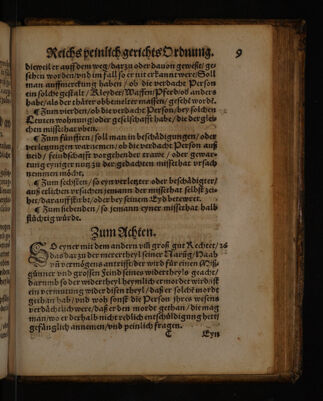 Reichs peinlich gerichts Ordnung. 9
dieweil er auff dem weg / dar zu oder dauon gewest / ge-
sehen worden / vnd im fall so er nit erkant were / Soll
man auffmerckung haben / ob die verdacht Person
ein solche gestalt / Kleyder / Waffen / Pferd oð anders
habe / als der thäter obbemelter massen / gesehẽ wordẽ.
¶ Zum vierden / ob die verdacht Person / bey solchen
Leuten wohnung oder gesellschafft habe / die derglei-
chen missethat üben.
¶ Zum fünfften / soll man in beschädigungen / oder
verletzungen warnemen / ob die verdacht Person auß
neid / feindschafft vorgehender trawe / oder gewar-
tung eyniges nutz zu der gedachten missethat vrsach
nemmen möcht.
¶ Zum sechsten / so eyn verletzter oder beschädigter /
auß etlichen vrsachen jemann der missethat selbst zei-
het / darauff stirbt / oder bey seinem Eyd betewret.
¶ Zum siebenden / so jemann eyner missethat halb
flüchtig würde.
Zum Achten.
SO eyner mit dem andern vm̃ groß gut Rechtet / 26
Das dar zu der merertheyl seiner Narũg / Haab
vñ vermögens antrifft / der wird für einen Miß-
günner vnd grossen Feind seines widertheyls geacht /
darumb so der widertheyl heymlich ermordet wird / ist
ein vermutung wider disen theyl / daß er solchẽ mordt
gethan hab / vnd woh sonst die Person jhres wesens
verdächtlich were / daß er den mordt gethan / die mag
man / wo er derhalb nicht redlich entschüldigung hett /
gefänglich annemen / vnd peinlich fragen.
C Eyn